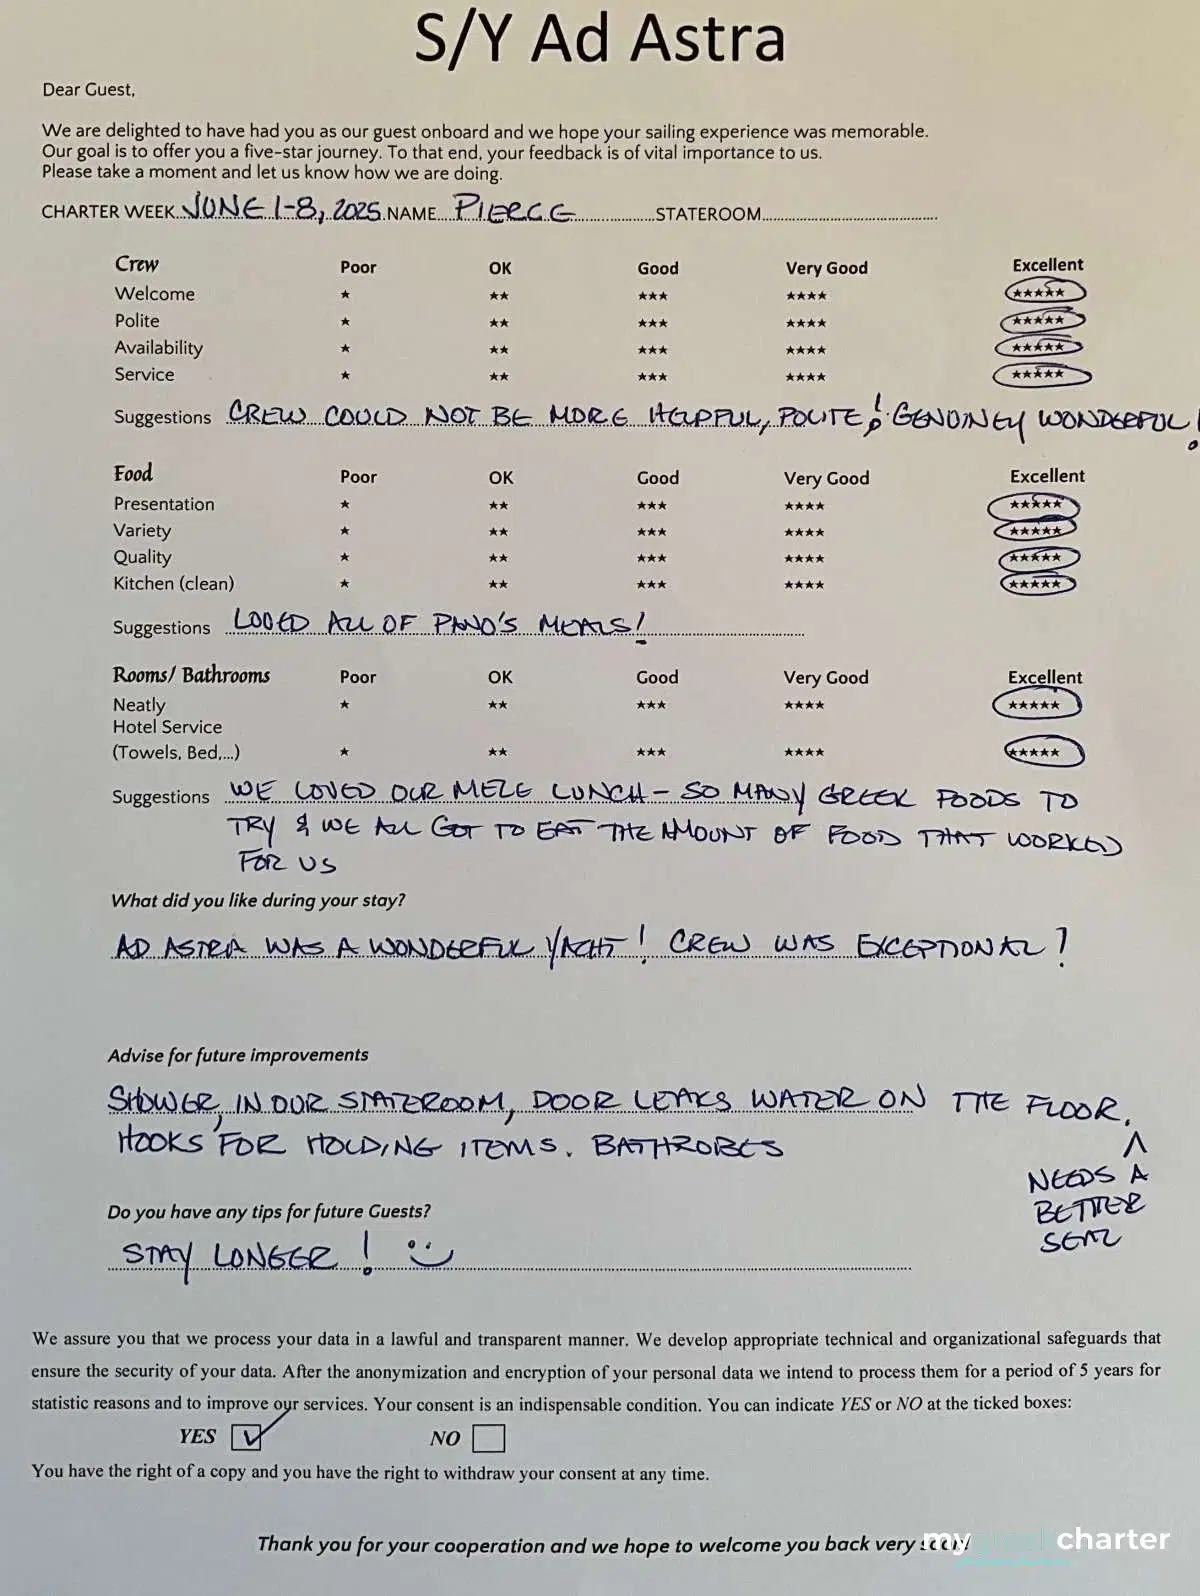 S/Y Ad Astra
Dear Guest,
We are delighted to have had you as our guest onboard and we hope your sailing experience was memorable.
Our goal is to offer you a five-star journey. To that end, your feedback is of vital importance to us.
Please take a moment and let us know how we are doing.
CHARTER WEEK JUNE 1-8, 2025 NAME PIERCE STATEROOM
Crew Poor OK Good Very Good Excellent
Welcome ★ ★★ ★★★ ★★★★ ★★★★★
Polite ★ ★★ ★★★ ★★★★ ★★★★★
Availability ★ ★★ ★★★ ★★★★ ★★★★★
Service ★ ★★ ★★★ ★★★★ ★★★★★
Suggestions CREW COULD NOT BE MORE HELPFUL, POLITE! GENUINEY WONDERFUL!
Food Poor OK Good Very Good Excellent
Presentation ★ ★★ ★★★ ★★★★ ★★★★★
Variety ★ ★★ ★★★ ★★★★ ★★★★★
Quality ★ ★★ ★★★ ★★★★ ★★★★★
Kitchen (clean) ★ ★★ ★★★ ★★★★ ★★★★★
Suggestions LOVED ALL OF PANO'S MEALS!
Rooms/ Bathrooms Poor OK Good Very Good Excellent
Neatly ★ ★★ ★★★ ★★★★ ★★★★★
Hotel Service
(Towels, Bed,...) ★ ★★ ★★★ ★★★★ ★★★★★
Suggestions WE LOVED OUR MEZE LUNCH - SO MANY GREEK FOODS TO
TRY & WE ALL GOT TO EAT THE AMOUNT OF FOOD THAT WORKED
FOR US
What did you like during your stay?
AD ASTRA WAS A WONDERFUL YACHT! CREW WAS EXCEPTIONAL!
Advise for future improvements
SHOWER, IN OUR STATEROOM, DOOR LEAKS WATER ON THE FLOOR.
HOOKS FOR HOLDING ITEMS. BATHROBES
NEEDS A
BETTER
SEAL
Do you have any tips for future Guests?
STAY LONGER! :)
We assure you that we process your data in a lawful and transparent manner. We develop appropriate technical and organizational safeguards that
ensure the security of your data. After the anonymization and encryption of your personal data we intend to process them for a period of 5 years for
statistic reasons and to improve our services. Your consent is an indispensable condition. You can indicate YES or NO at the ticked boxes:
YES ☑ NO ☐
You have the right of a copy and you have the right to withdraw your consent at any time.
Thank you for your cooperation and we hope to welcome you back very soon!
mygreekcharter